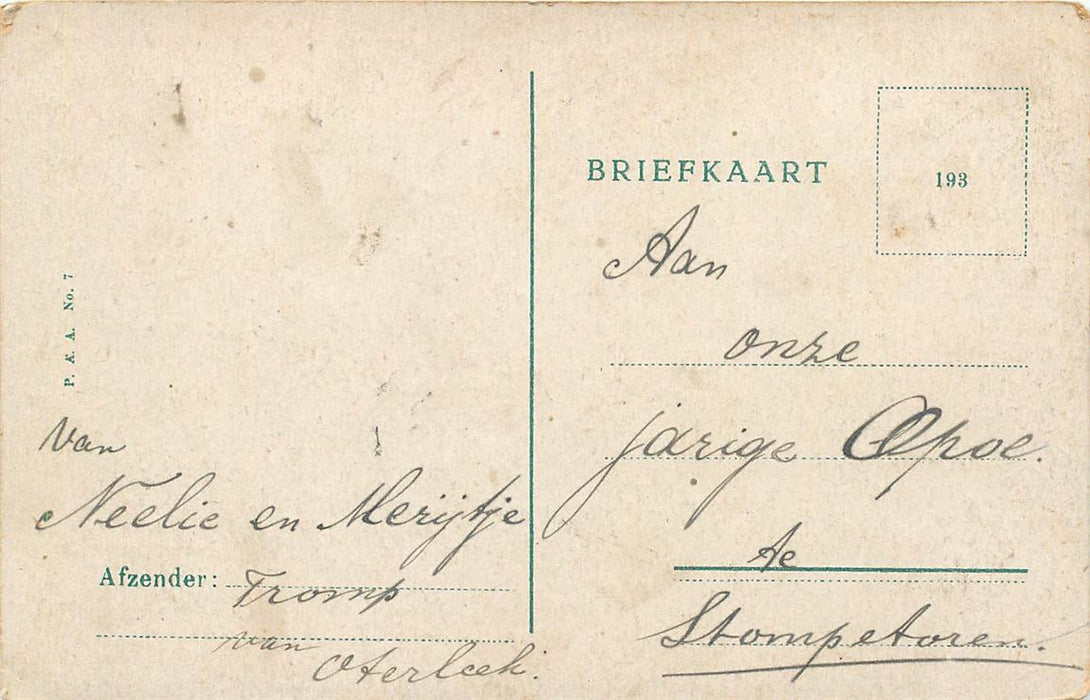 P. Æ. A. No. 7
van
Neelie en Merijtje
Afzender: Tromp
van Oterleek.
BRIEFKAART
193
Aan
onze
jarige Opoe.
te
Stompetoren.